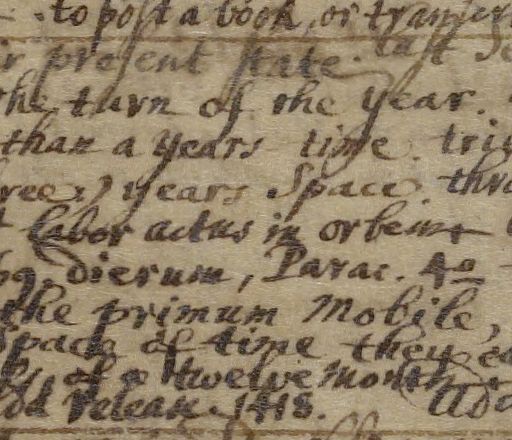 to post a book, or transferr
present state. last
the turn of the year.
than a years time. tri
ree) years Space. thr
labor actus in orbem
dierum, Parac. 4o
the primum Mobile,
space of time they
of a twelve month
Release. 1418. Add